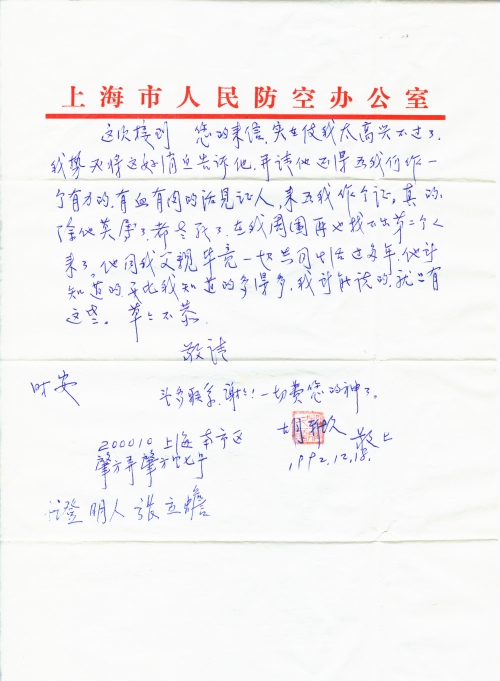 上海市人民防空办公室
这次接到 您的来信,实在使我太高兴不过了。
我势必将这好消息告诉他,并请他还得为我们作一
个有力的,有血有肉的活见证人,来为我作个证。真的,
除他莫属了,都去死了,在我周围再也找不出第二个人
来了,他同我父亲毕竟一切共同生活过多年,他所
知道的要比我知道的多得多,我所能谈的,就只有
这些。草草不恭
敬请
时安 多联系,谢谢!一切费您的神了。
胡 敬上
200010 上海南市区 1992.12.18.
肇方弄肇方
证明人 张立